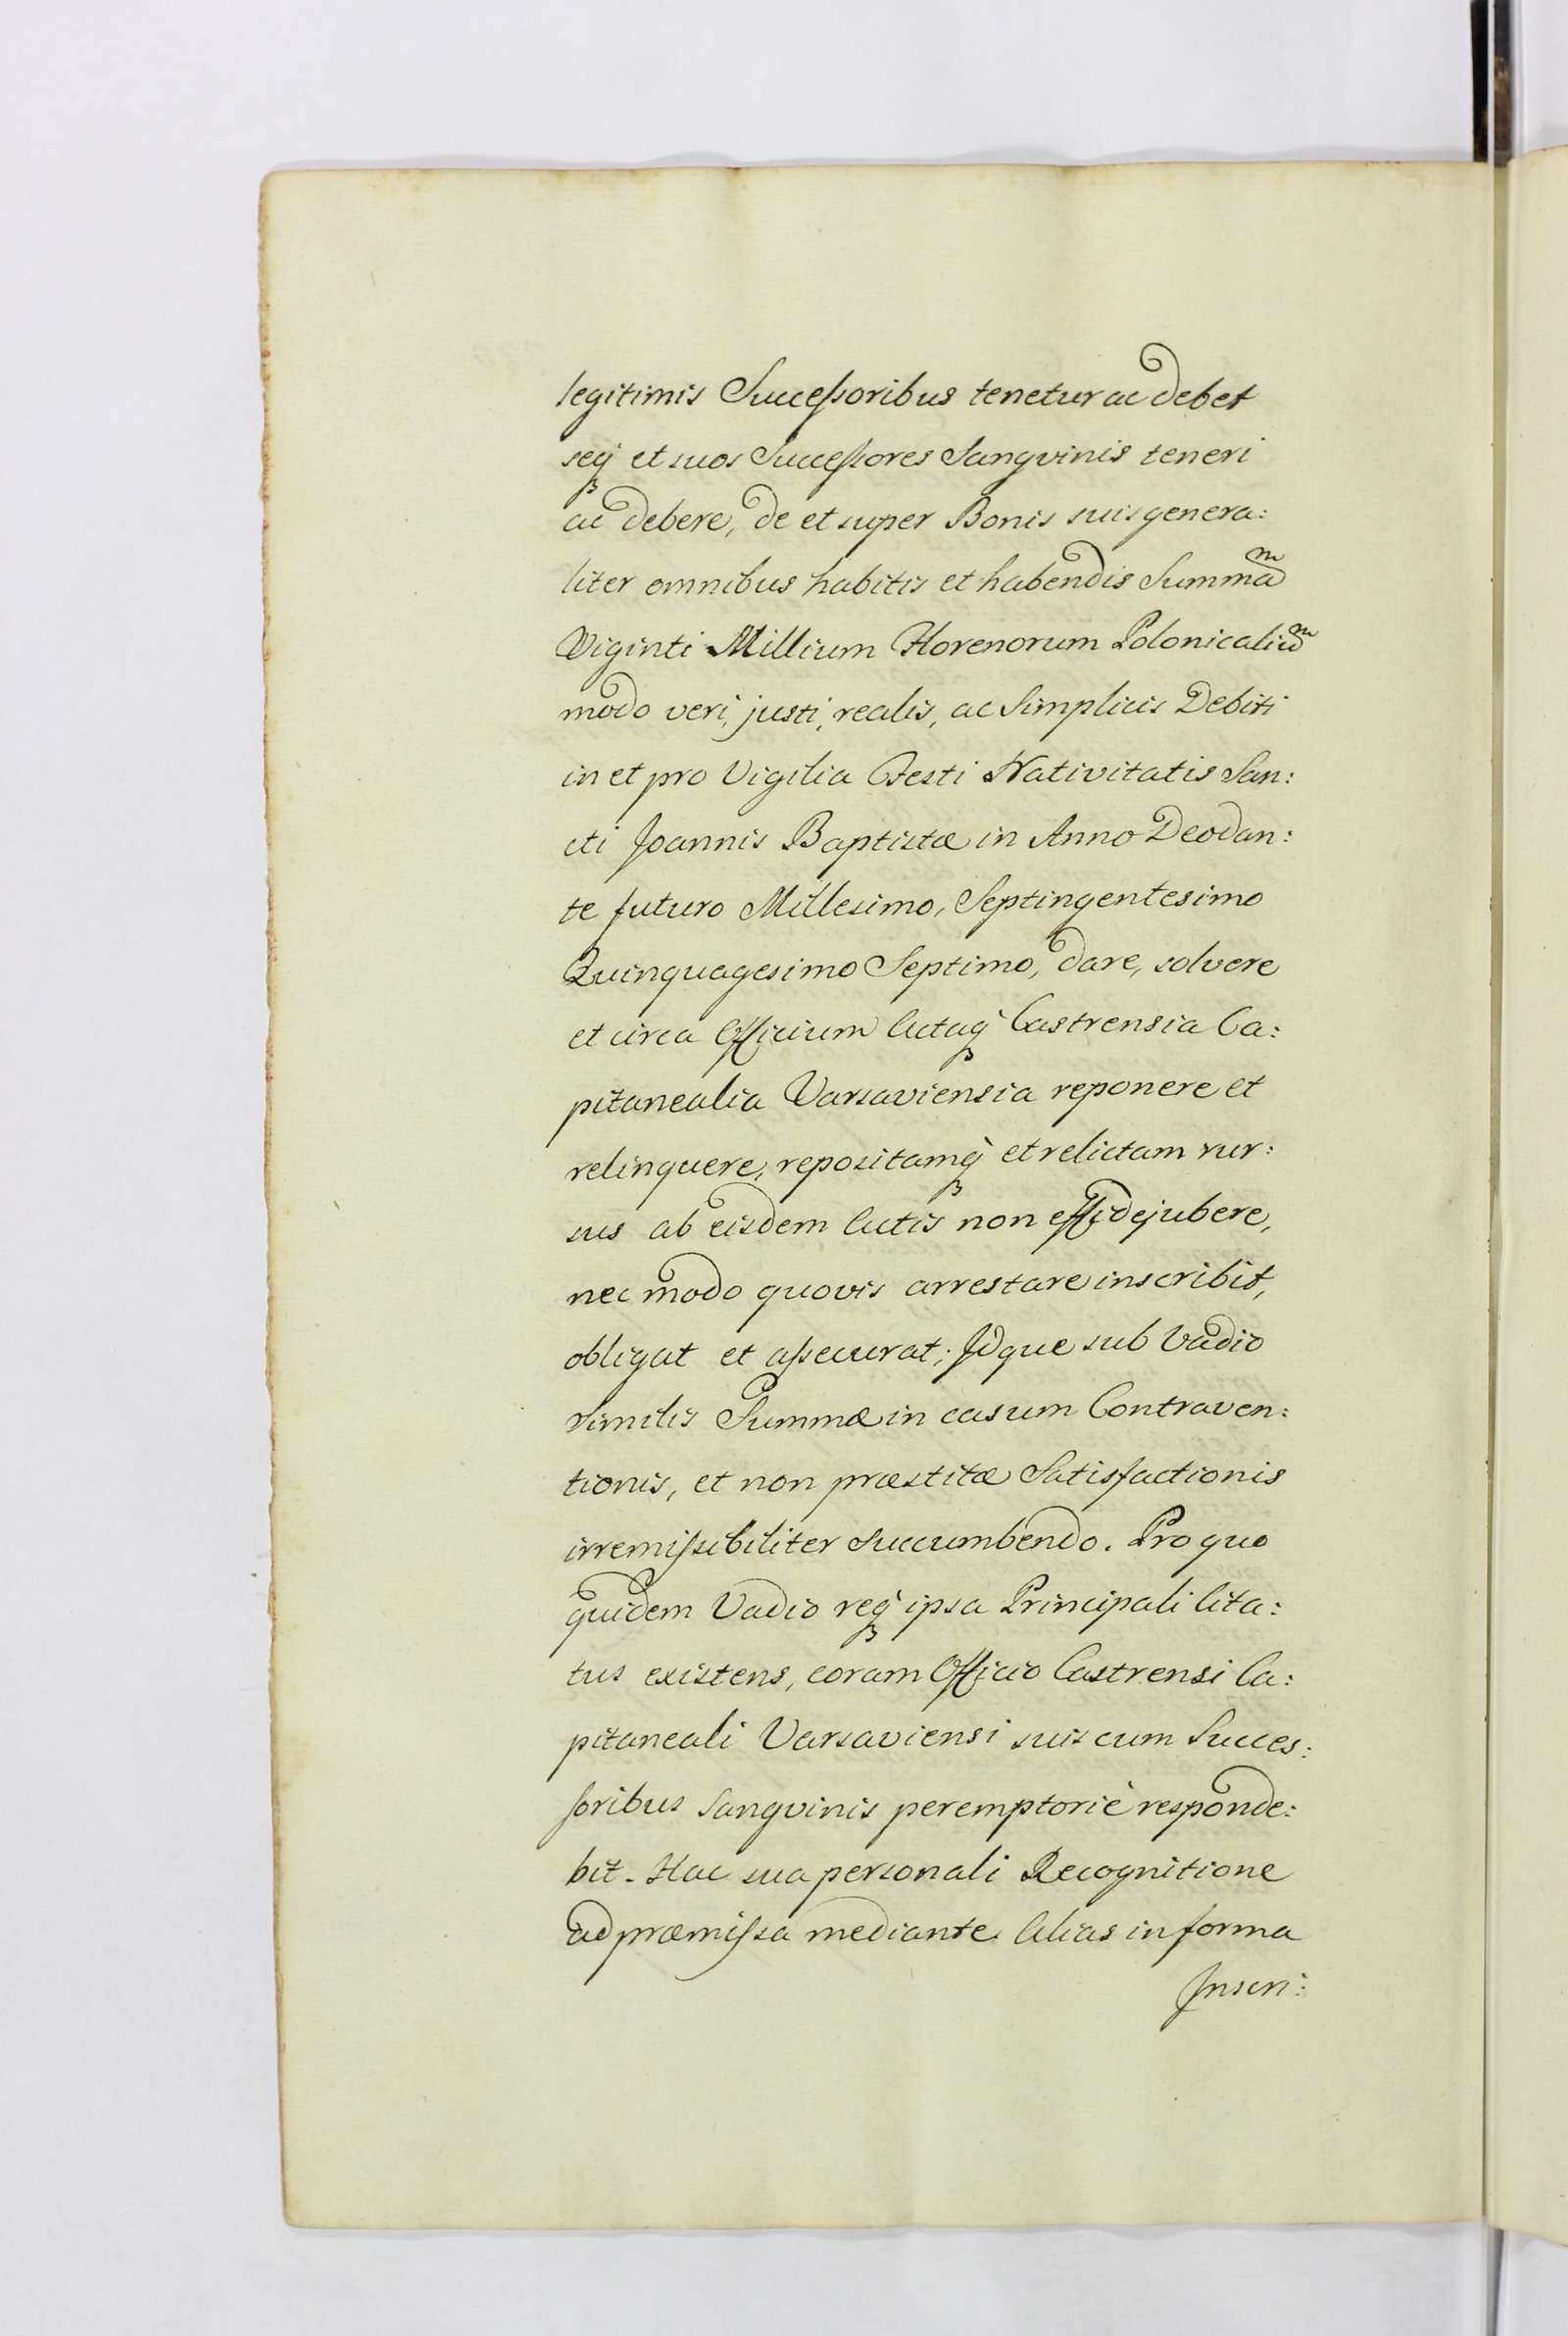 legitimis Successoribus tenetur ac debet
seq́ et suos Successores Sangvinis teneri
ac debere, de et super Bonis suis genera:
liter omnibus habitis et habendis Summaᵐ
Viginti Millium Florenorum Polonicaliuᵐ
modo veri, justi, realis, ac Simplicis Debiti
in et pro Vigilia Festi Nativitatis San:
cti Joannis Baptistæ in Anno Deodan:
te futuro Millesimo, Septingentesimo
Quinquagesimo Septimo, dare, solvere
et circa Officium Actaq́ Castrensia Ca:
pitanealia Varsaviensia reponere et
relinquere, repositamq́ et relictam rur:
sus ab eisdem Actis non effidejubere,
nec modo quovis arrestare inscribit,
obligat et assecurat; Idque sub Vadio
Similis Summæ in casum Contraven:
tionis, et non præstitæ Satisfactionis
irremissibiliter Succumbendo. Pro quo
quidem Vadio req́ ipsa Principali Cita:
tus existens, coram Officio Castrensi Ca:
pitaneali Varsaviensi suis cum Succes:
soribus Sangvinis peremptoriè responde:
bit. Hac sua personali Recognitione
ad præmissa mediante Alias in forma
Inscri: